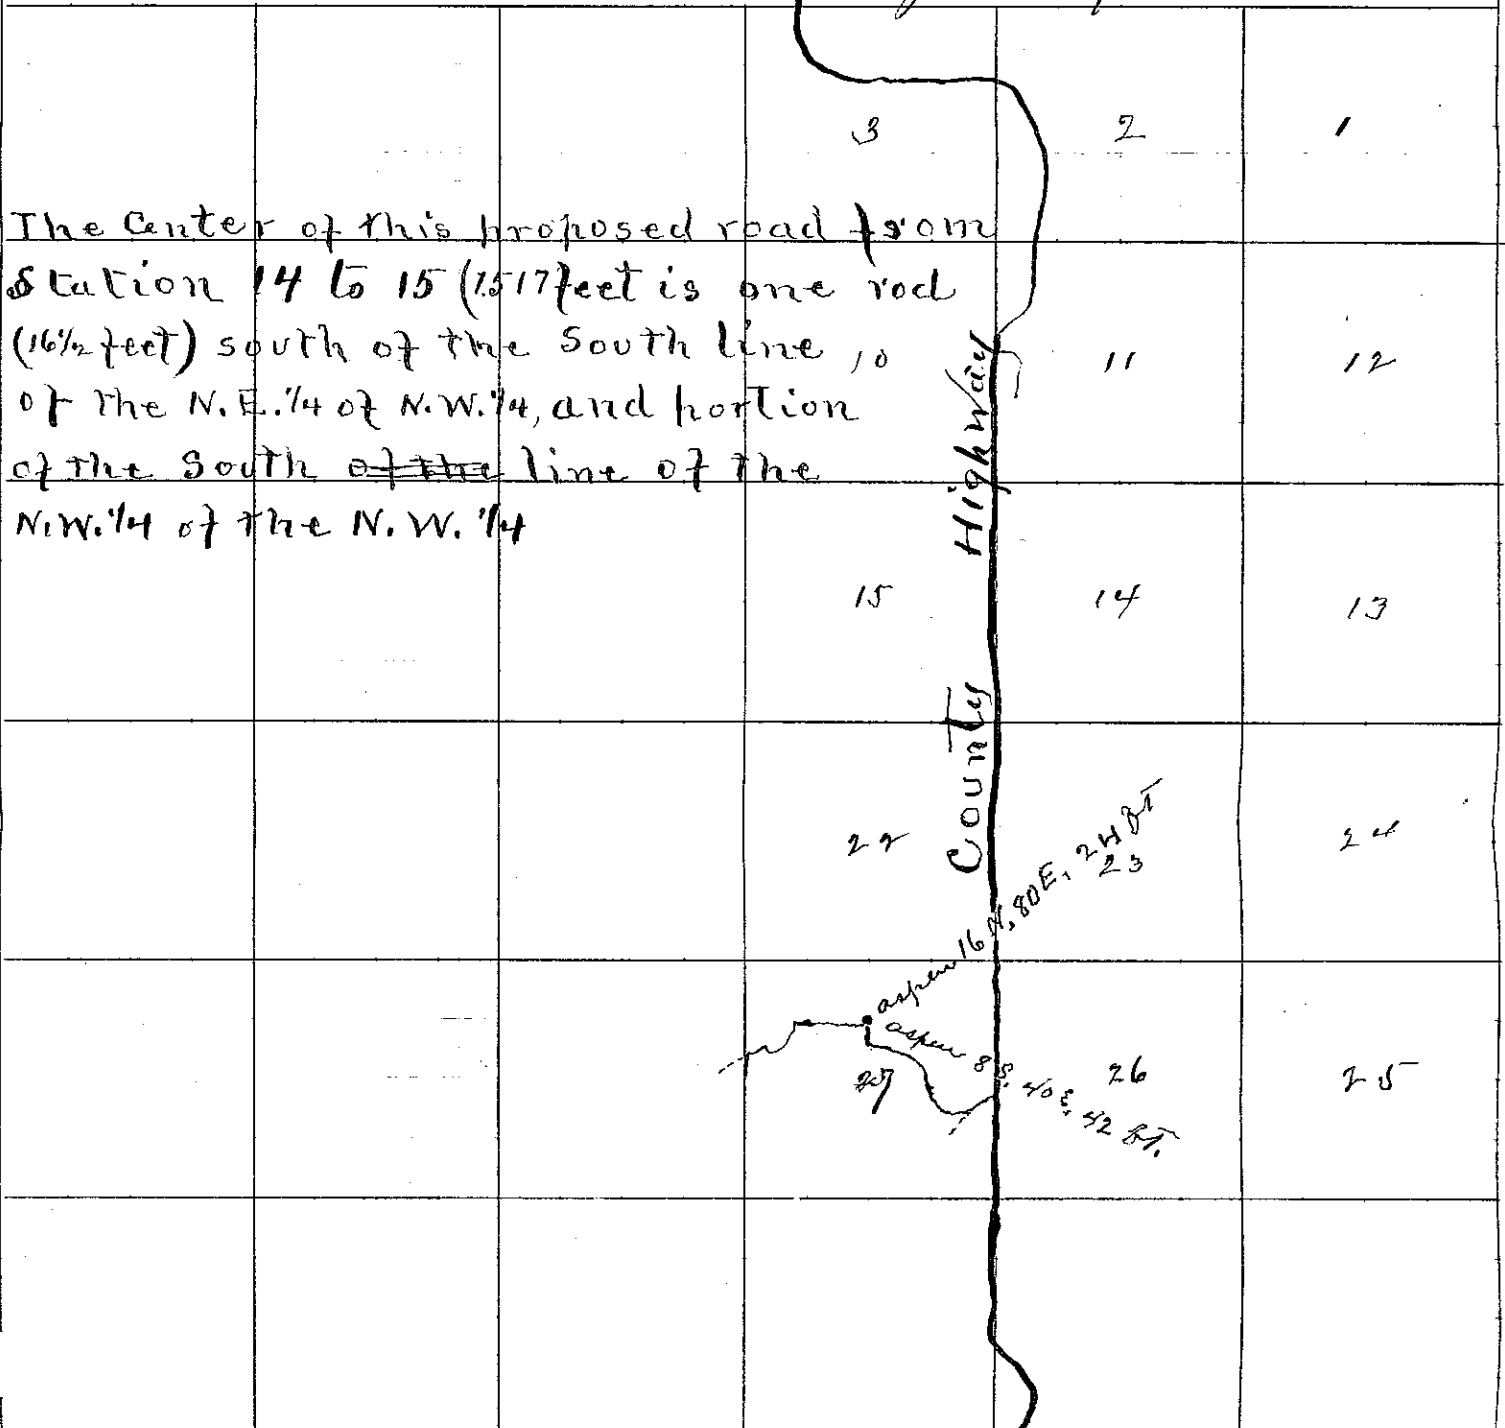 3
2
1
The Center of this proposed road from
Station 14 to 15 (1517 feet is one rod
(16½ feet) south of the South line
of the N.E.¼ of N.W.¼, and portion
of the South of the line of the
N.W.¼ of the N.W. ¼
10
11
12
County Highway
15
14
13
22
23
24
aspen 16 N, 80E, 24 BT
aspen 8 S, 40 E, 42 BT.
27
26
25